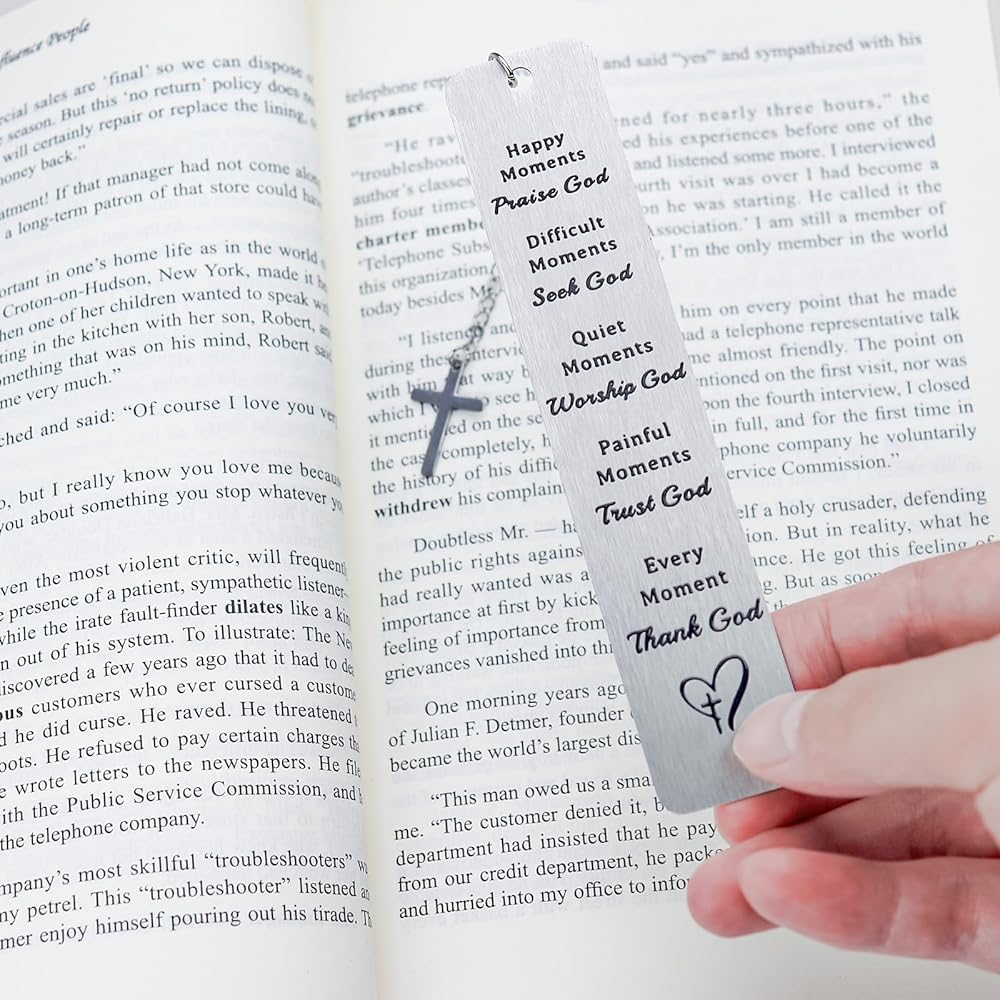 fluence People
cial sales are ‘final’ so we can dispose
season. But this ‘no return’ policy does
will certainly repair or replace the lining,
oney back.”
atment! If that manager had not come
a long-term patron of that store could
ortant in one's home life as in the world
Croton-on-Hudson, New York, made it
hen one of her children wanted to speak
ting in the kitchen with her son, Robert,
omething that was on his mind, Robert
me very much.”
ched and said: “Of course I love you
o, but I really know you love me
you about something you stop whatever
ven the most violent critic, will
e presence of a patient, sympathetic listener-
while the irate fault-finder dilates like a
n out of his system. To illustrate: The
iscovered a few years ago that it had to
ous customers who ever cursed a
d he did curse. He raved. He threatened
oots. He refused to pay certain charges
e wrote letters to the newspapers. He
ith the Public Service Commission, and
the telephone company.
mpany's most skillful “troubleshooters”
ny petrel. This “troubleshooter” listened
mer enjoy himself pouring out his tirade.
Happy
Moments
Praise God
Difficult
Moments
Seek God
Quiet
Moments
Worship God
Painful
Moments
Trust God
Every
Moment
Thank God
telephone and said “yes” and sympathized with his
grievance.
“He for nearly three hours,” the
“troubleshoote his experiences before one of the
author's and listened some more. I interviewed
him four times visit was over I had become a
charter he was starting. He called it the
‘Telephone ssociation.’ I am still a member of
this organization, I'm the only member in the world
today besides
“I him on every point that he made
during a telephone representative talk
with him that way almost friendly. The point on
which on the first visit, nor was
it on the upon the fourth interview, I closed
the completely, in full, and for the first time in
the history of his phone company he voluntarily
withdrew his ervice Commission.”
Doubtless Mr. — elf a holy crusader, defending
the public rights against But in reality, what he
had really wanted was a He got this feeling of
importance at first by But as soon
feeling of importance from
grievances vanished into
One morning years ago
of Julian F. Detmer, founder
became the world's largest
“This man owed us a
me. “The customer denied it,
department had insisted that he pay
from our credit department, he
and hurried into my office to